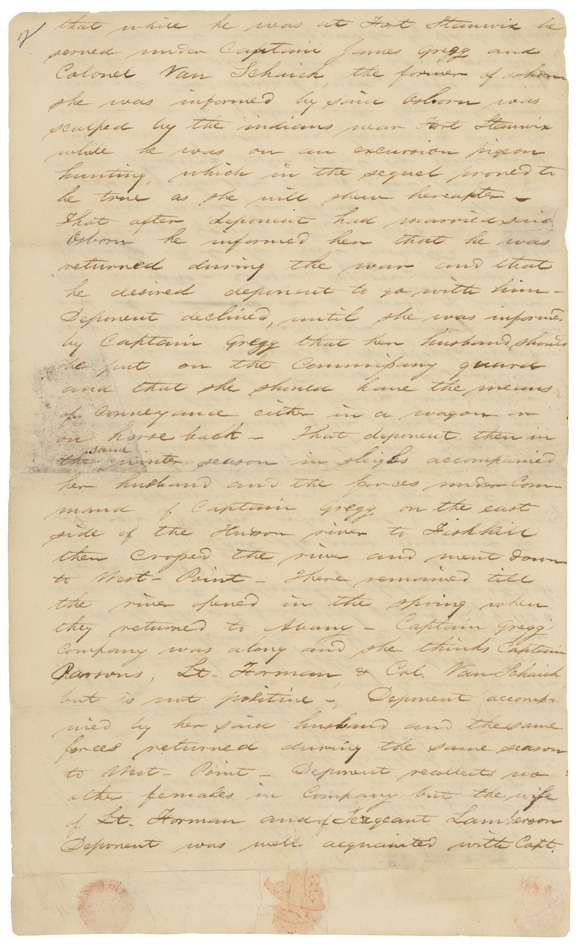 that while he was at Fort Stanwix he
served under Captain James Gregg and
Colonel Van Schaick, the former of whom
she was informed by said Osborn was
scalped by the indians near Fort Stanwix
while he was on an excursion pigeon
hunting, which in the sequel proved to
be true as she will shew hereafter -
That after deponent had married said
Osborn he informed her that he was
returned during the war and that
he desired deponent to go with him -
Deponent declined, until she was informed
by Captain Gregg that her husband should
be put on the Commissary guard
and that she should have the means
of conveyance either in a wagon or
on horse back - That deponent then in
the same winter season in sleighs accompanied
her husband and the forces under Com
mand of Captain Gregg on the east
side of the Hudson river to Fishkill
then crossed the river and went down
to West-Point - There remained till
the river opened in the spring, when
they returned to Albany - Captain Gregg's
Company was along and she thinks Captain
Parsons, Lt. Forman, & Col. Van Schaick
but is not positive -, Deponent accompa
nied by her said husband and the same
forces returned during the same season
to West-Point - Deponent recollects no
other females in Company but the wife
of Lt. Forman and of Sergeant Lamberson
Deponent was well acquainted with Capt.